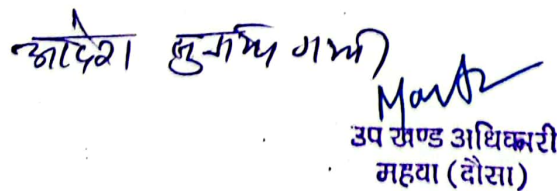 आदेश सुनाया गया
उप खण्ड अधिकारी
महवा (दौसा)